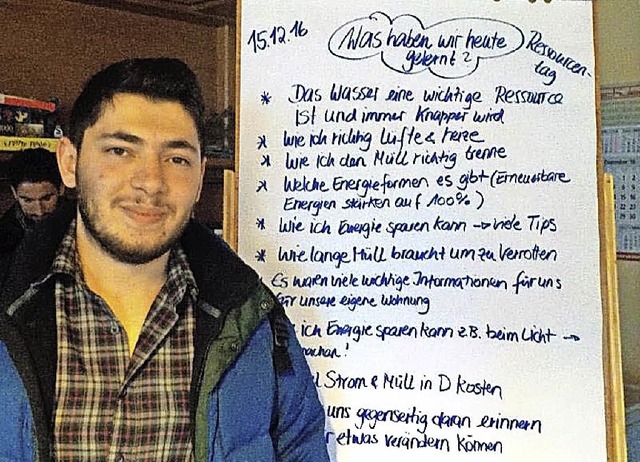 15.12.16
Was haben wir heute
gelernt?
Ressourcen-
tag
* Das Wasser eine wichtige Ressource
Ist und immer Knapper wird
* Wie ich richtig lüfte & heize
* Wie ich den Müll richtig trenne
* Welche Energieformen es gibt (Erneuerbare
Energien stärken auf 100%)
* Wie ich Energie sparen kann → viele Tips
* Wie lange Müll braucht um zu Verrotten
Es waren viele wichtige Informationen für uns
für unsere eigene Wohnung
ich Energie sparen kann z.B. beim Licht →
machen!
Strom & Müll in D Kosten
uns gegenseitig daran erinnern
etwas verändern können